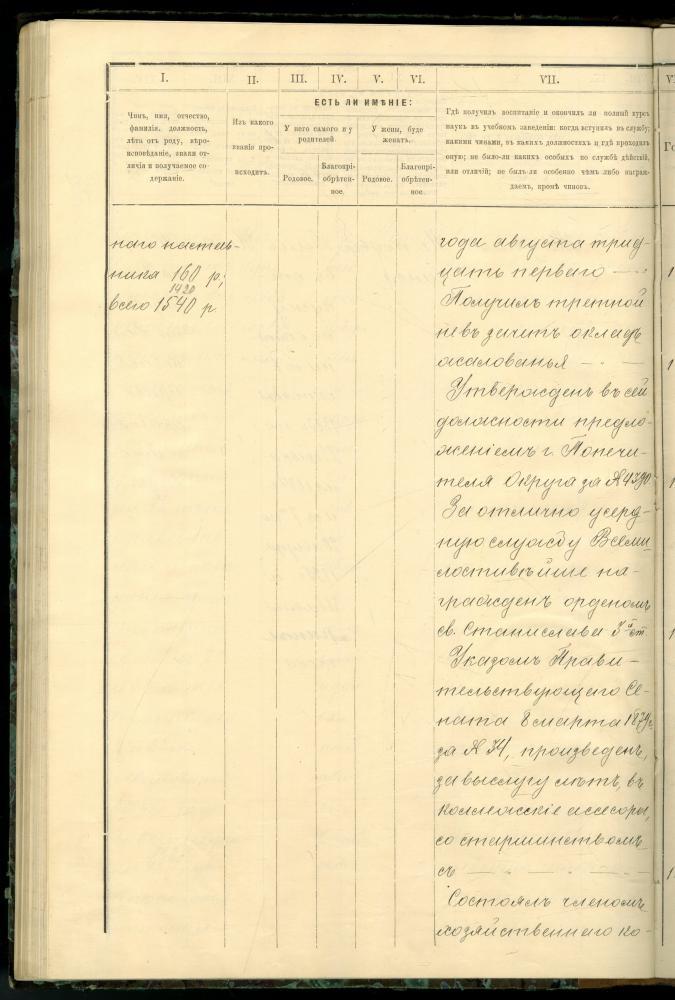 I.
II.
III.
IV.
V.
VI.
VII.
Чинъ, имя, отчество,
фамилія, должность,
лѣта отъ роду, вѣро-
исповѣданіе, знаки от-
личія и получаемое со-
держаніе.
Изъ какого
званія про-
исходитъ.
ЕСТЬ ЛИ ИМѢНІЕ:
У него самого и у
родителей.
У жены, буде
женатъ.
Родовое.
Благопрі-
обрѣтен-
ное.
Родовое.
Благопрі-
обрѣтен-
ное.
Гдѣ получилъ воспитаніе и окончилъ ли полный курсъ
наукъ въ учебномъ заведеніи: когда вступилъ въ службу;
какими чинами, въ какихъ должностяхъ и гдѣ проходилъ
оную; не было-ли какихъ особыхъ по службѣ дѣйствій,
или отличій; не былъ-ли особенно чѣмъ либо награж-
даемъ, кромѣ чиновъ.
наго настав-
ника 160 р;
1420
всего 1540 р.
года августа трид-
цать перваго —
Получилъ третной
не въ зачетъ окладъ
жалованья — - —
Утвержденъ въ сей
должности предло-
женіемъ г. Попечи-
теля Округа за № 4790
За отлично усерд-
ную службу Всеми-
лостивѣйше на-
гражденъ орденомъ
св. Станислава 3й ст.
Указомъ Прави-
тельствующаго Се-
ната 8 марта 1879 г.
за № 34, произведенъ,
за выслугу лѣтъ, въ
коллежскіе ассесоры,
со старшинствомъ
съ — - — - —
Состоялъ членомъ
хозяйственнаго ко-